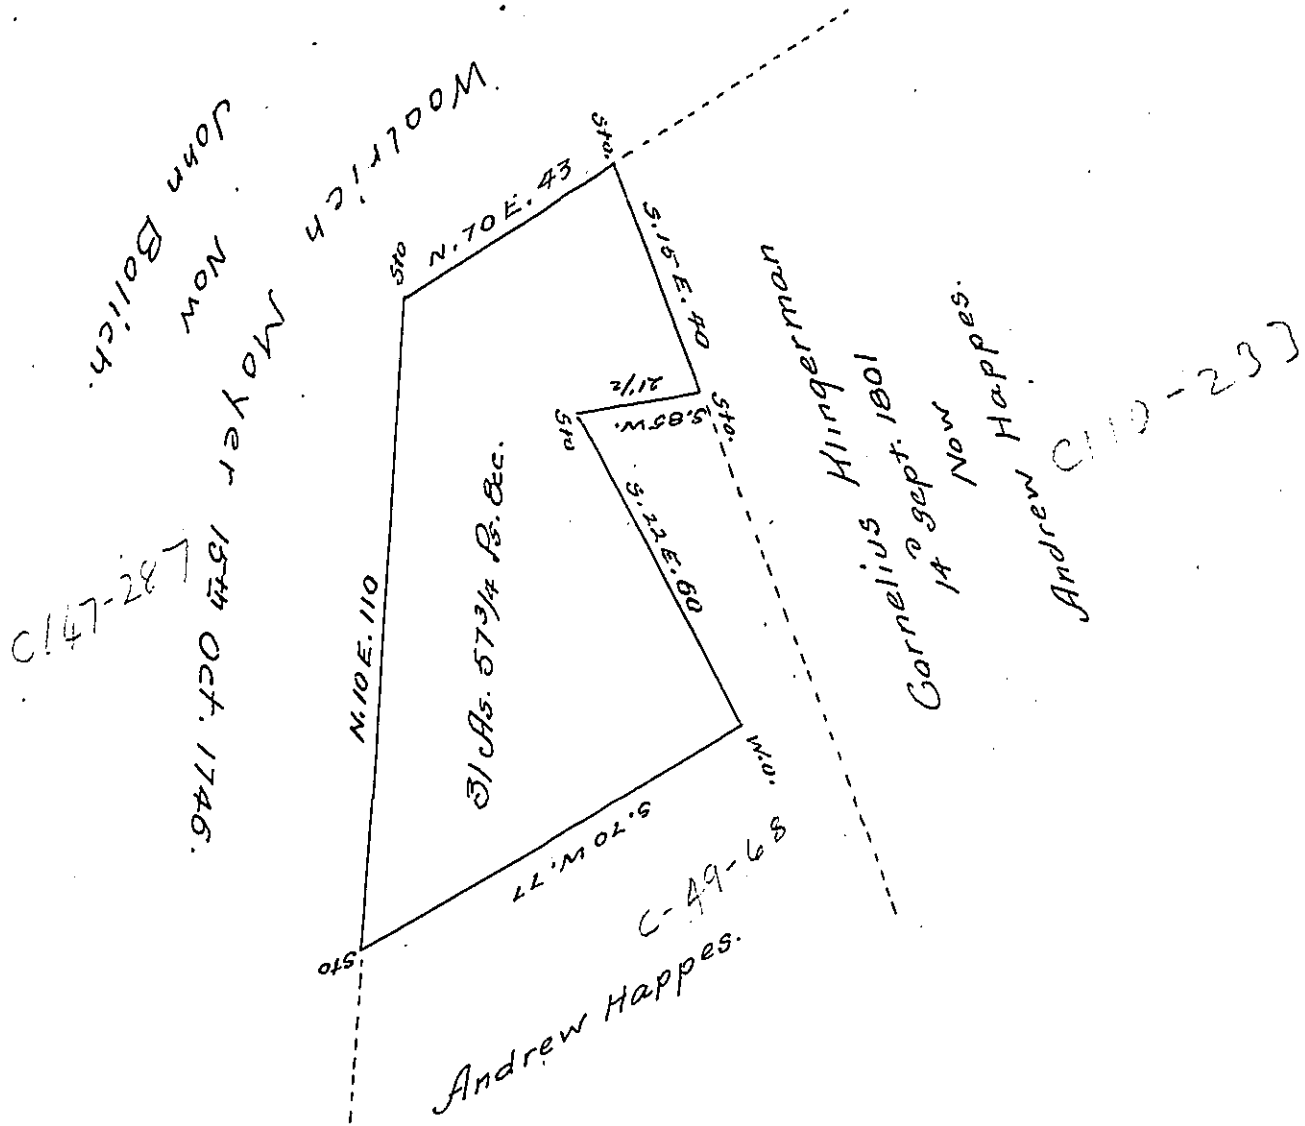 Woolrich
Moyer 15th Oct. 1746.
Now
John Bolich.
C147-287
Sto
N. 70 E. 43
Sto.
S. 15 E. 40
Sto.
S. 85 W.
21 1/2
Sto
S. 22 E. 60
W.O.
S. 70 W. 77
Sto
N. 10 E. 110
31 As. 57 3/4 Ps. &cc.
Cornelius Klingerman
14th Sept. 1801
Now
Andrew Happes.
C-49-68
Andrew Happes.